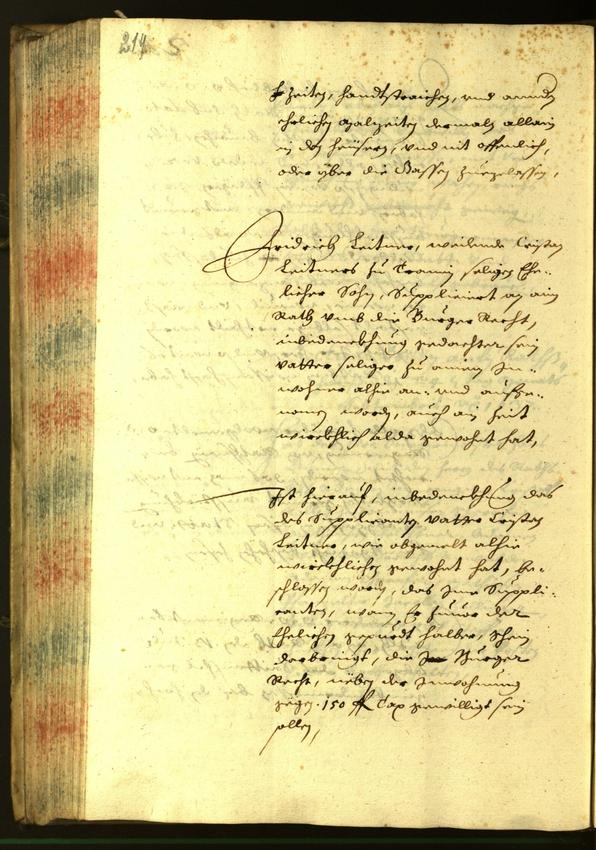 214
hzeiten, handtstraichen, und anndern
ehrlichen malzeiten dermals allain
in den heüsern, und nit offendlich,
oder yber die Gassen zuegelassen,
Fridrich Leitner, weilendt Cristan
Leitners zu Tramin seligen Ehe-
licher Sohn, Supplicierт an ain
Rath umb die Burger Recht,
inbedenckhung gedachter sein
vatter seliger zu ainem In-
wohner alhie an- und aufge-
nomen worden, auch ain Zeit
würckhlich alda gewohnt hat,
Ist hierauf, inbedenckhung das
des Supplicanten vatter Cristan
Leitner, wie obgemelt alhie
würckhlichen gewohnt hat, be-
schlossen worden, das Ime Suppli-
canten, wann Er zuuor der
Ehelichen gepurdt halber, schein
derbringt, die Burger
Recht, neben der Inwohnung
gegen 150 fl Tax gewilligt sein
sollen,